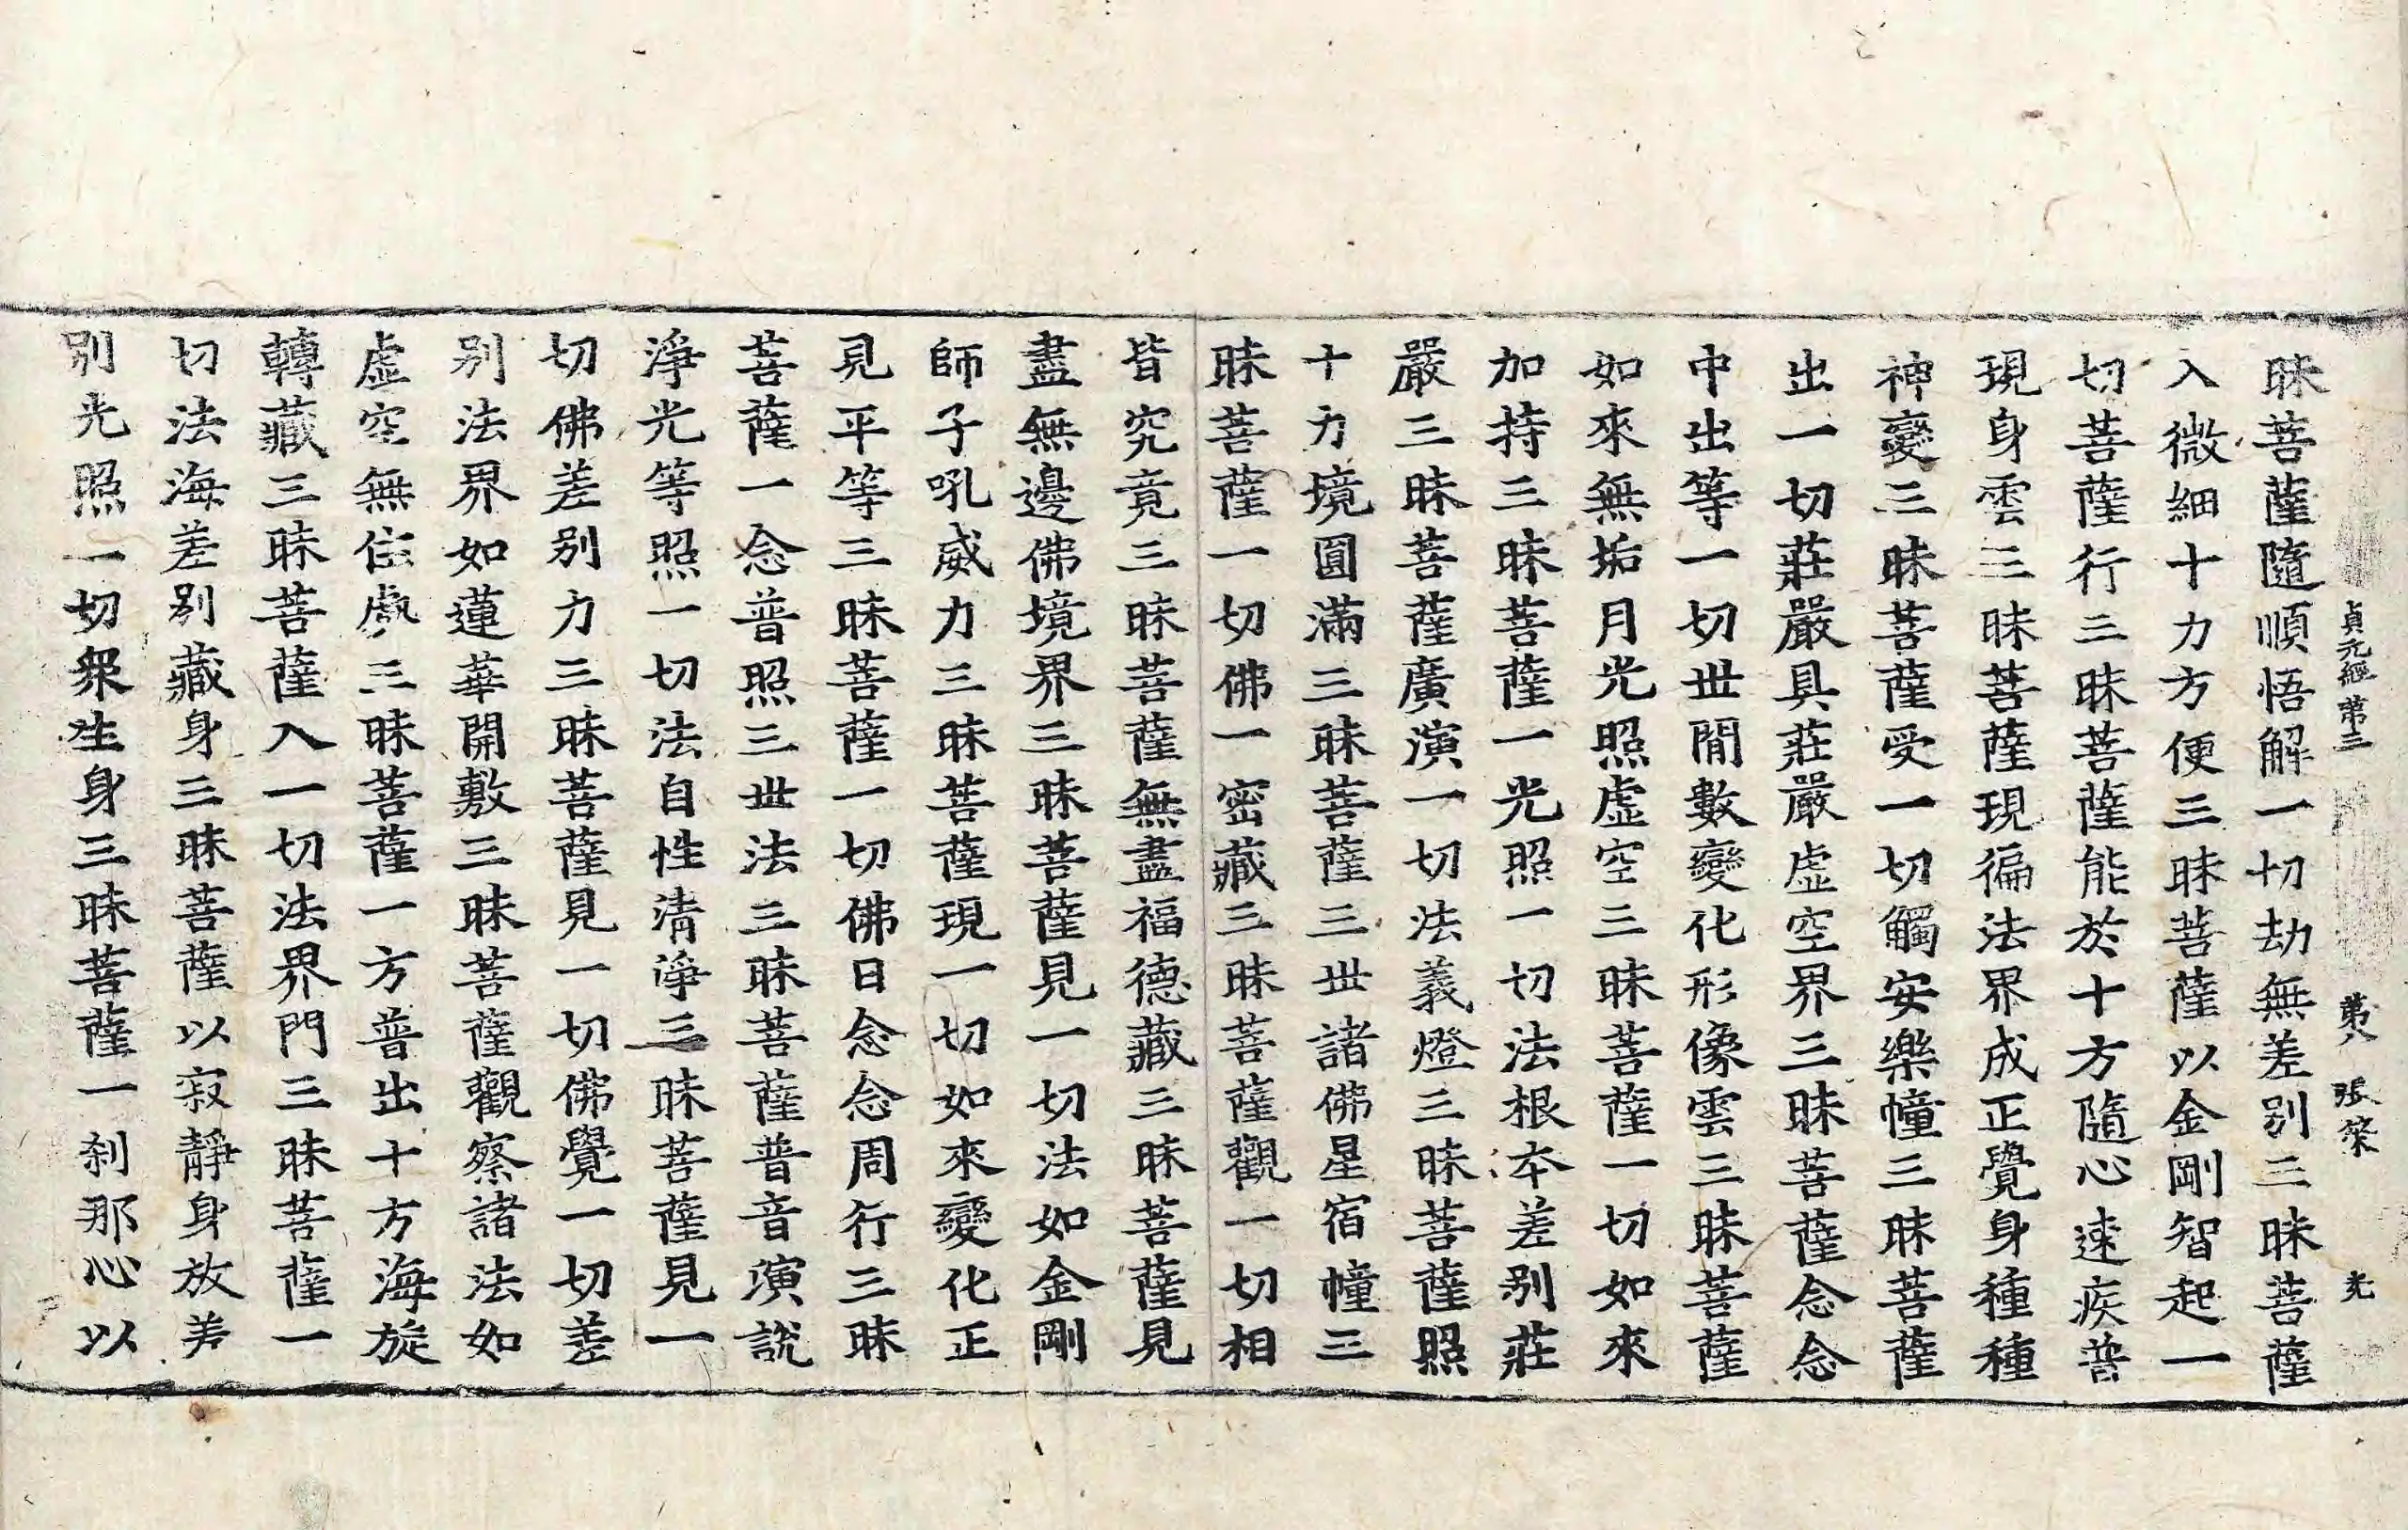 貞元經第三 第八 張 榮 光
昧菩薩隨順悟解一切劫無差別三昧菩薩
入微細十力方便三昧菩薩以金剛智起一
切菩薩行三昧菩薩能於十方隨心速疾普
現身雲三昧菩薩現徧法界成正覺身種種
神變三昧菩薩受一切觸安樂幢三昧菩薩
出一切莊嚴具莊嚴虛空界三昧菩薩念念
中出等一切世閒數變化形像雲三昧菩薩
如來無垢月光照虛空三昧菩薩一切如來
加持三昧菩薩一光照一切法根本差別莊
嚴三昧菩薩廣演一切法義燈三昧菩薩照
十力境圓滿三昧菩薩三世諸佛星宿幢三
昧菩薩一切佛一密藏三昧菩薩觀一切相
皆究竟三昧菩薩無盡福德藏三昧菩薩見
盡無邊佛境界三昧菩薩見一切法如金剛
師子吼威力三昧菩薩現一切如來變化正
見平等三昧菩薩一切佛日念念周行三昧
菩薩一念普照三世法三昧菩薩普音演說
淨光等照一切法自性清淨三昧菩薩見一
切佛差別力三昧菩薩見一切佛覺一切差
別法界如蓮華開敷三昧菩薩觀察諸法如
虛空無住處三昧菩薩一方普出十方海旋
轉藏三昧菩薩入一切法界門三昧菩薩一
切法海差別藏身三昧菩薩以寂靜身放差
別光照一切衆生身三昧菩薩一刹那心以